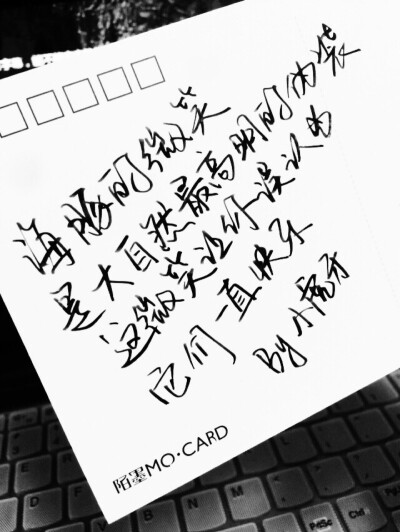 海豚的微笑
是大自然最高明的伪装
这微笑让你误认为
它们一直快乐
By 小虎牙
陌墨MO·CARD